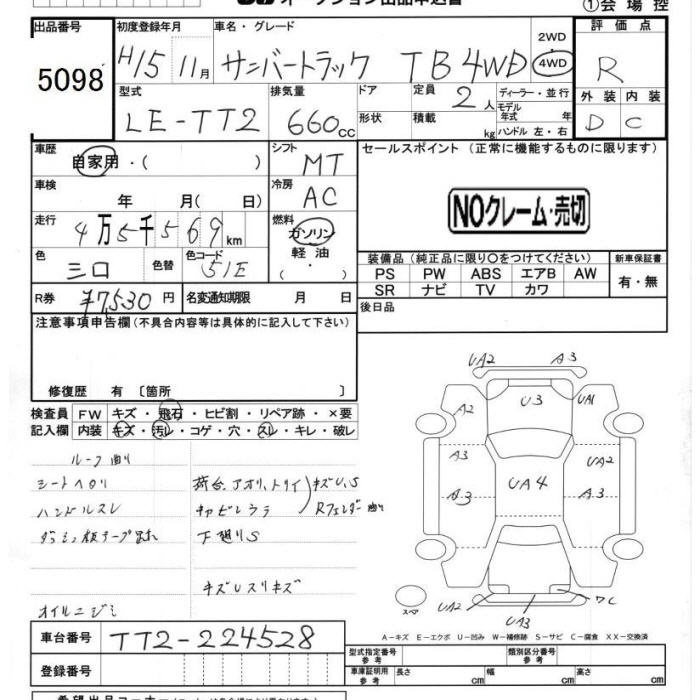 オークション出品申込書
①会場控
出品番号 初度登録年月 車名・グレード 2WD 評価点
5098 H15 11月 サンバートラック TB 4WD 4WD R
型式 排気量 ドア 定員 2人 ディーラー・並行 外装 内装
LE-TT2 660cc 形状 積載 kg モデル年式 年 D C
ハンドル 左・右
車歴 シフト セールスポイント (正常に機能するものに限ります)
自家用・( ) MT
車検 冷房
年 月( 日) AC NOクレーム・売切
走行 燃料
4万5千569km ガソリン
軽油
・
色 色替 色コード 装備品(純正品に限り○をつけてください) 新車保証書
三ロ 51E PS PW ABS エアB AW 有・無
SR ナビ TV カワ
R券 ¥7,530円 名変通知期限 月 日 後日品
注意事項申告欄(不具合内容等は具体的に記入して下さい)
修復歴 有〔箇所 〕
検査員 FW キズ・飛石・ヒビ割・リペア跡・×要
記入欄 内装 キズ・汚レ・コゲ・穴・スレ・キレ・破レ
ルーフ曲り
シートヘタリ 荷台、アオリ、トリイ キズU、S
ハンドルスレ キャビンウラ Rフェンダー曲り
ダッシュ板テープ 下廻りS
キズUスリキズ
オイルニジミ
UA2 A3
A2 U3 UA1
A3 UA2
A3 UA4 A3
スペア UA2 UA3 DC
A-キズ E-エクボ U-凹み W-補修跡 S-サビ C-腐食 XX-交換済
車台番号 TT2-224528
型式指定番号 参考 類別区分番号 参考
登録番号 車庫証明用 参考 長さ cm 幅 cm 高さ cm